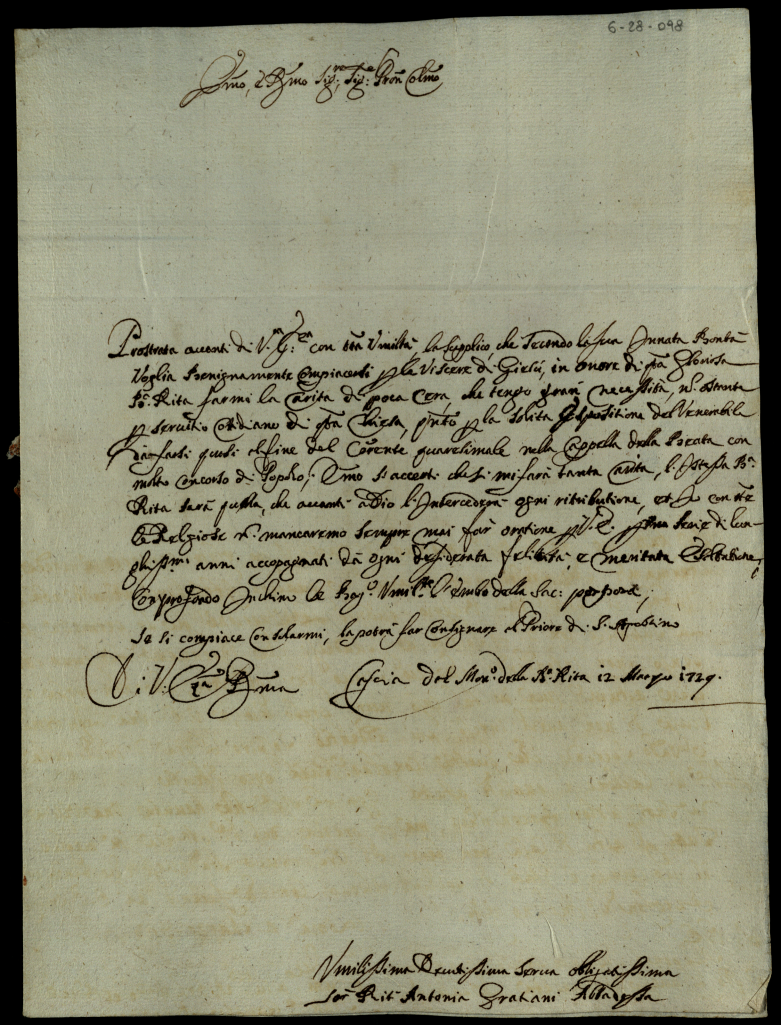 6-28-098
Emo, e Rmo Sig.re, Sig.e Pron Colmo
Prostrata avanti di V. Em.za con tta Umiltà la supplico, che secondo la sua Innata Bontà
Voglia Benignamente Compiacersi p le Viscere di Giesù, in onore di qta Gloriosa
B.a Rita farmi la carità di poca cera, che tengo gran necessità, n. ostante
p servitio cotidiano di qta Chiesa, p la solita Espositione del Venerabile
da farsi quasi al fine del Corente quaresimale nella Cappella della Beata con
molto concorso di Popolo; Emo s'accerti che se mi farà tanta carità, l'Istessa B.a
Rita sarà quella, che avanti a Dio l'Intercederà ogni ritributione, et Io con tte
le Religiose n. mancaremo sempre mai far oratione p V. E. p una serie di lun-
ghissimi anni accopagnati da ogni desiderata felicità, e meritata Esaltatione,
Con profondo Inchino le bagio Umil.te il lembo della Sac: porpora;
Se si compiace consolarmi, la potrà far consignare al Priore di S. Agostino
Di V. Em.za Rma Cascia dal Mon.o della B.a Rita 12 Marzo 1729.
Umilissima Devotissima Serva obligatissima
Sor Rita Antonia Gratiani Abbadessa